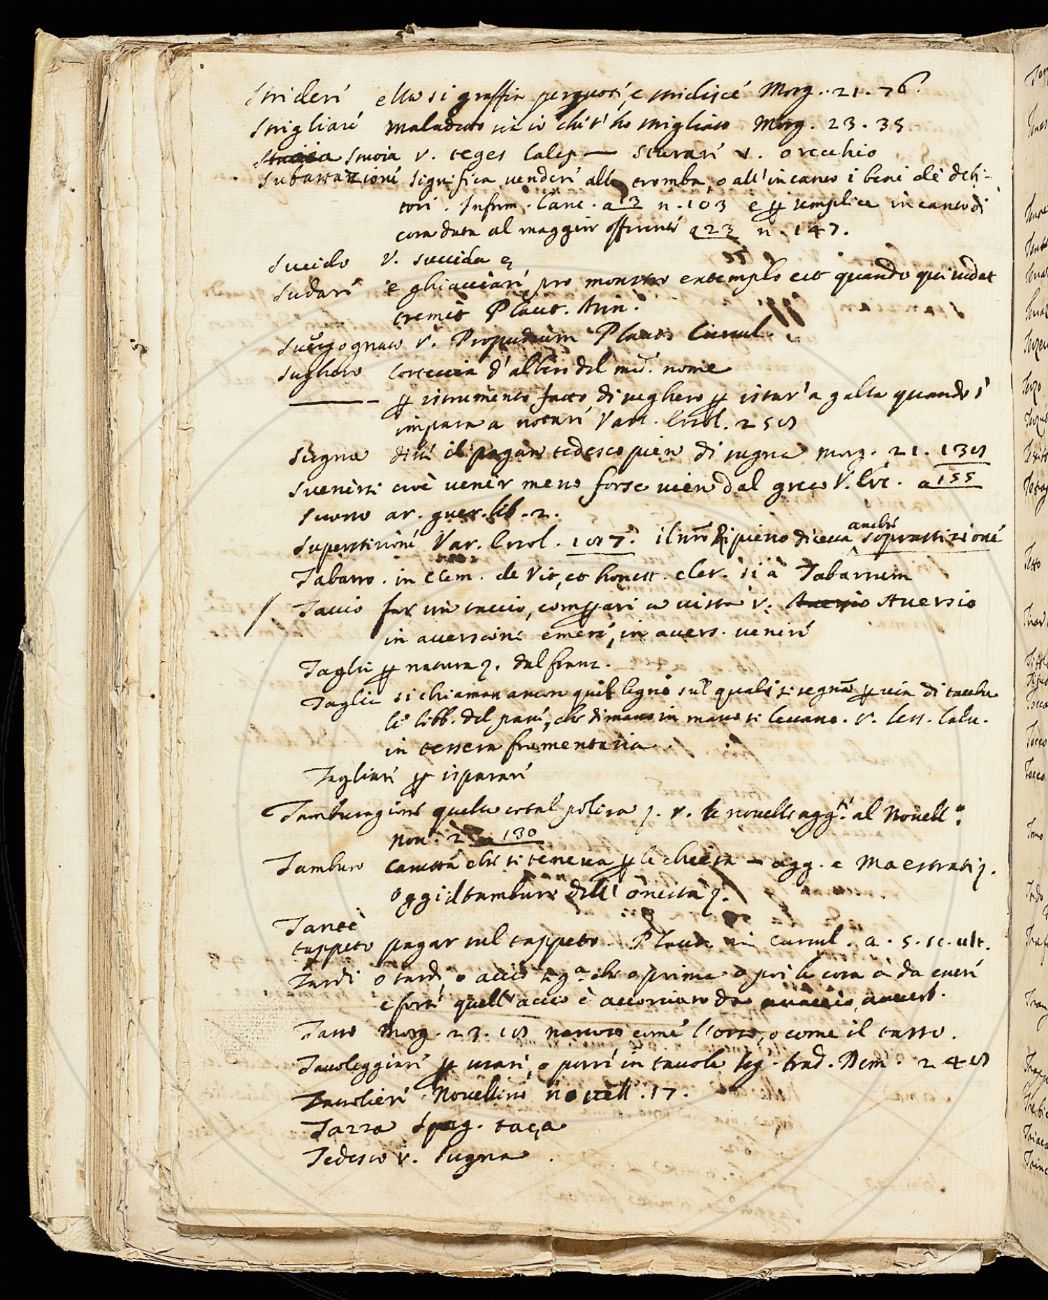 Strideri ella si graffia percuoti, e stridisce Morg. 21. 76.
Strigliari maladetto sia io ch'i' t'ho strigliato Morg. 23. 35
Stuoia v. teges Calep — sturari v. orecchio
Subastazioni significa venderi alla tromba, o all' incanto i beni de debi-
tori. n. 103 è semplice incanto di
cosa data al maggior offerente a 23 n. 147.
Sucido v. sucida
Sudari e ghiacciari pro monstro extemplo est quando qui sudat
tremit Plaut. Asin.
Svergognato v. Propudium Plauto Curcul.
Sughero corteccia d'alberi del md. nome
istrumento fatto di sughero istar' a galla quando s'
impara a notari Var. Ercol. 258
Sugna disse il pagan tedesco pien di sugna Morg. 21. 138
Svenirsi cioè venir meno forse vien dal greco V. a 155
Suono ar. guer. lib. 2.
Superstizioni Var. Ercol. 107. il nro Ripieno diceva anche soprastizioni
Tabarro. in Clem. de Vit, et honest. cler. si à Tabarrum
Taccio far un taccio, comprari a vista v. Aversio
in aversioni emeri, in avers. veniri
Taglia natura dal franz.
Taglia si chiaman ancora quei legni su' quali si segna
le libb. del pani, che di mano in mano si levano. v.
in tessera frumentaria
Tagliari isparari
Tamburagioni quella cotal polizza v. le novelle agg. al Novell.
Non. 2 a 130
Tamburo cassetta che si teneva le chiesa — agg. e Maestrati
oggi il tamburo dell' onestà
Tantè
tappeto pagar sul tappeto. Plauto in Curcul. a. 5. sc. ult.
Tardi o tardi, o accio che o prima o poi la cosa à da esseri
e forsi quell' accio è accorciato da avaccio, avverb.
Tasso Morg. 23. 18 nascoso come l'orso, o come il tasso.
Tavoleggiari usari, o porri in tavola trad. Dem. 248
Tavolieri Novellino novell. 17.
Tazza Spag. taça
Tedesco v. sugna.